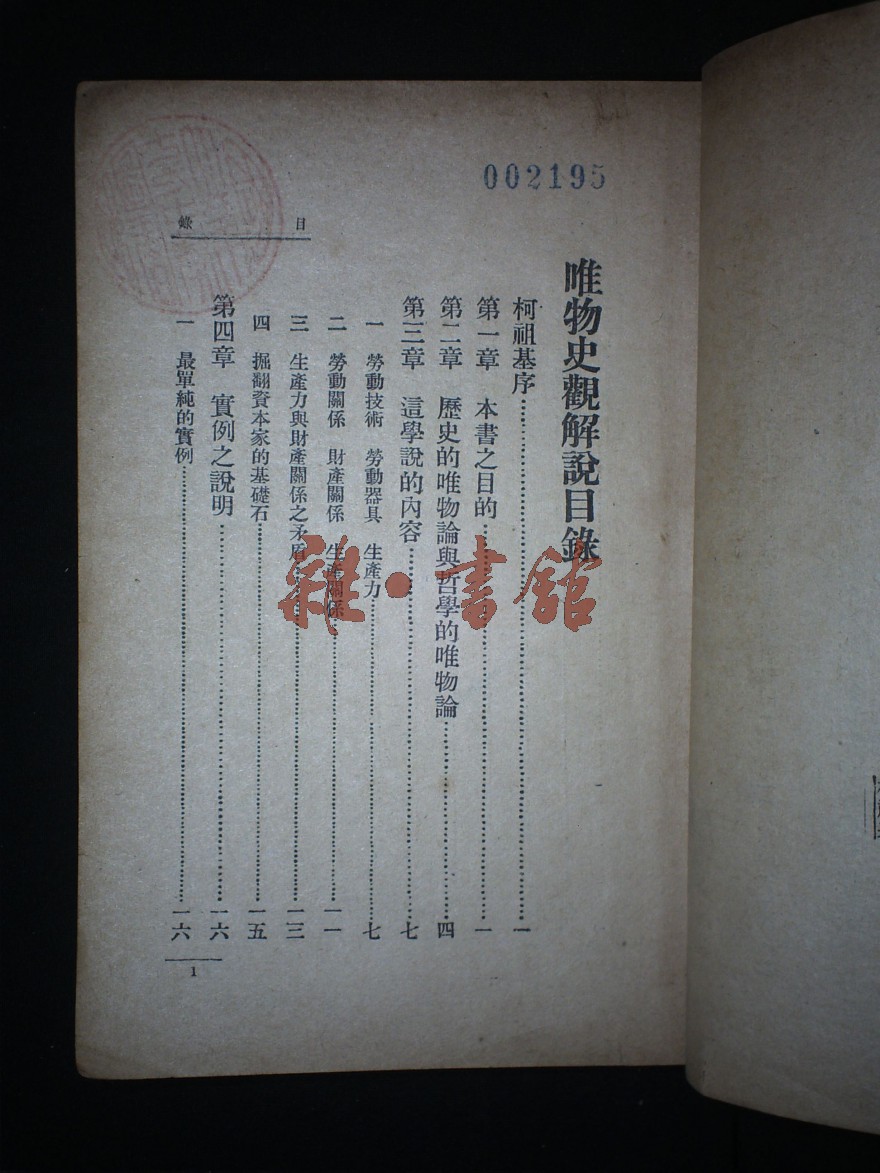 002195
目錄
唯物史觀解說目錄
柯祖基序……一
第一章　本書之目的……一
第二章　歷史的唯物論與哲學的唯物論……四
第三章　這學說的內容……七
一　勞動技術　勞動器具　生產力……七
二　勞動關係　財產關係　生產關係……一一
三　生產力與財產關係之矛盾……一三
四　掘翻資本家的基礎石……一五
第四章　實例之說明……一六
一　最單純的實例……一六
1
雜·書館